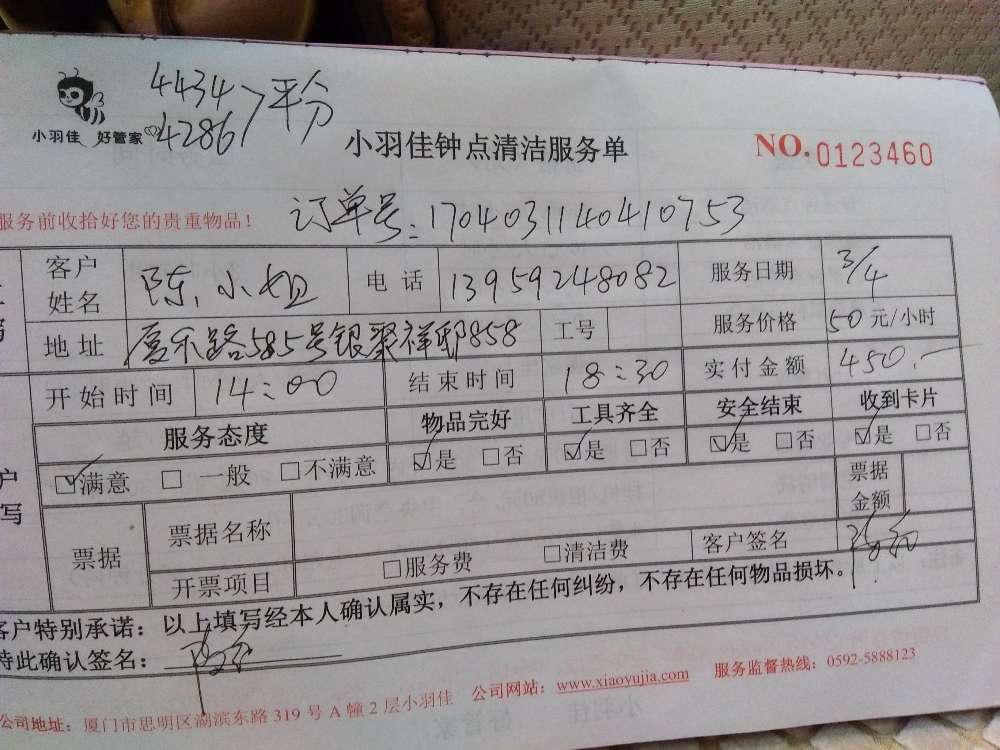 4434
4286 平分
小羽佳 好管家
小羽佳钟点清洁服务单
NO.0123460
服务前收拾好您的贵重物品!
订单号:1704031140410753
客户姓名 陈小姐 电话 13959248082 服务日期 3/4
地址 嘉禾路585号银聚祥邸858 工号 服务价格 50元/小时
开始时间 14:00 结束时间 18:30 实付金额 450.一
服务态度 物品完好 工具齐全 安全结束 收到卡片
☑满意 □一般 □不满意 ☑是 □否 ☑是 □否 ☑是 □否 ☑是 □否
户
写
票据 票据名称 票据金额
开票项目 □服务费 □清洁费 客户签名
客户特别承诺:以上填写经本人确认属实,不存在任何纠纷,不存在任何物品损坏。
特此确认签名:
公司地址:厦门市思明区湖滨东路319号A幢2层小羽佳 公司网站:www.xiaoyujia.com 服务监督热线:0592-5888123